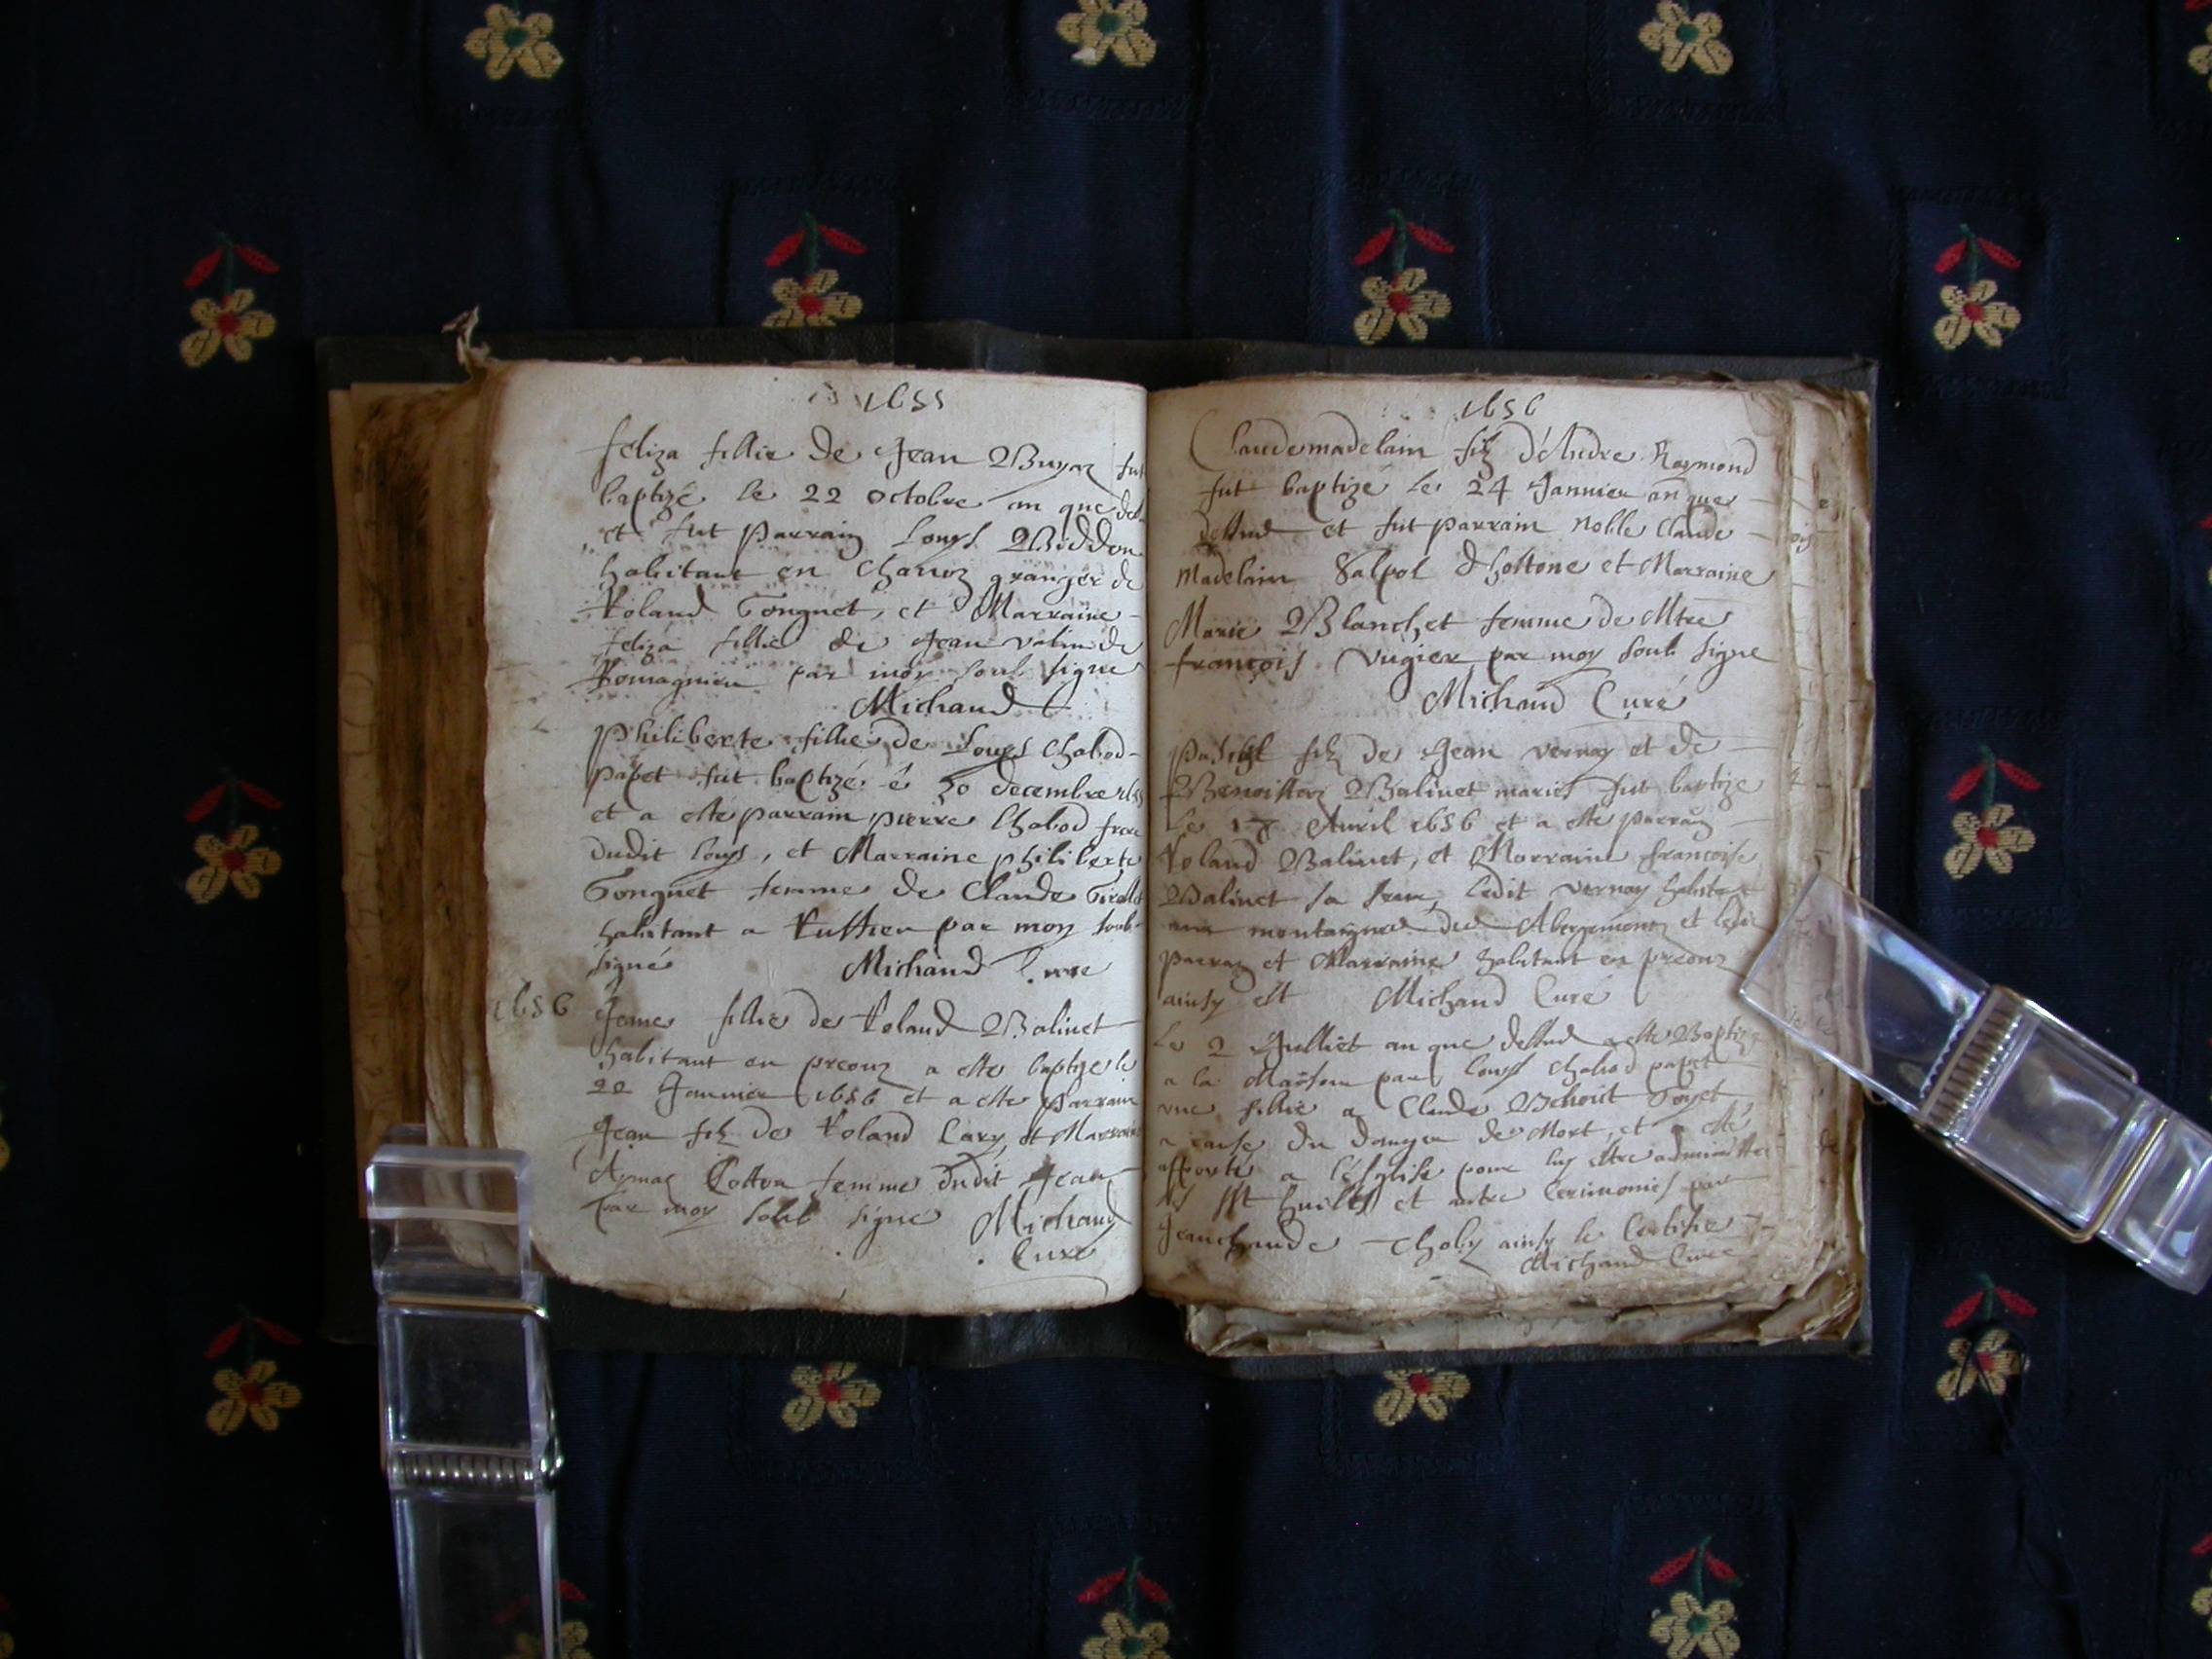 1655
feliza fillie de Jean Buyaz fut
baptizé le 22 octobre an que
et fut parrain Louys Biddon
habitant en Chanoz granger de
Roland Gonguet, et Marraine
feliza fillie de Jean Valin de
Romagnieu par moy soub signe
Michaud
philiberte fillie de Louys Chabod
papet fut baptizé é 30 decembre
et a este parrain pierre Chabod frere
dudit Louys, et Marraine philiberte
Gonguet femme de Claude
habitant a Ruffieu par moy soub
signé Michaud Cure
1656 Jeane fillie de Roland Balinet
habitant en precouz a este baptize le
22 Jannier 1656 et a este parrain
Jean filz de Roland Cary, et Marraine
Aymaz Cotton femme dudit Jean
Par moy soub signé Michaud
Curé
1656
Claudemadelain filz d'Andre Raymond
fut baptizé le 24 Jannier an que
dessud et fut parrain noble Claude
Madelain d'hostone et Marraine
Marie Blanchet femme de Mtre
françois Vugier par moy soub signe
Michaud Curé
filz de Jean Vernay et de
Benoiste Balinet mariés fut baptize
Le 17 Avril 1656 et a este parrain
Roland Balinet, et Marraine françoise
Balinet sa ledit Vernay habitant
aux montaignes des Abergement et ledit
parrain et Marraine habitant en precouz
ainsy est Michaud Curé
Le 2 Julliet an que dessud a este Baptizé
a la Maison par Louys Chabod papet
vne fillie a Claude Benoit Goyet
a cause du danger de Mort, et a esté
apporté a l'église pour luy estre administré
les sst huilles et autre Ceremonies par
Jeanclaude ainsy le Certifie
Michaud Cure